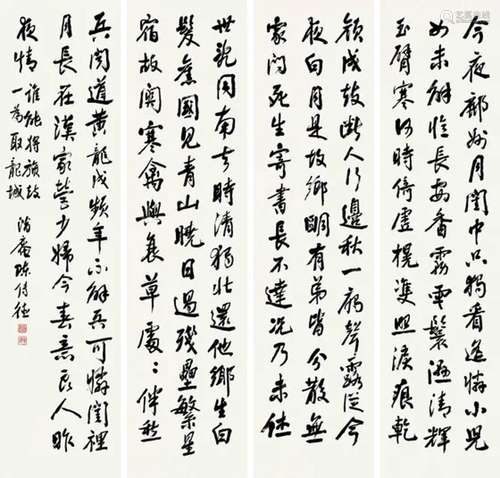 今夜鄜州月閨中只獨看遙憐小兒
女未解憶長安香霧雲鬟濕清輝
玉臂寒何時倚虛幌雙照淚痕乾
顏戍鼓斷人行邊秋一雁聲露從今
夜白月是故鄉明有弟皆分散無
家問死生寄書長不達況乃未休
世亂同南去時清獨北還他鄉生白
髮舊國見青山曉月過殘壘繁星
宿故關寒禽與衰草處:伴愁
兵聞道黃龍戍頻年不解兵可憐閨裡
月長在漢家營少婦今春意良人昨
夜情誰能將旗鼓
一為取龍城